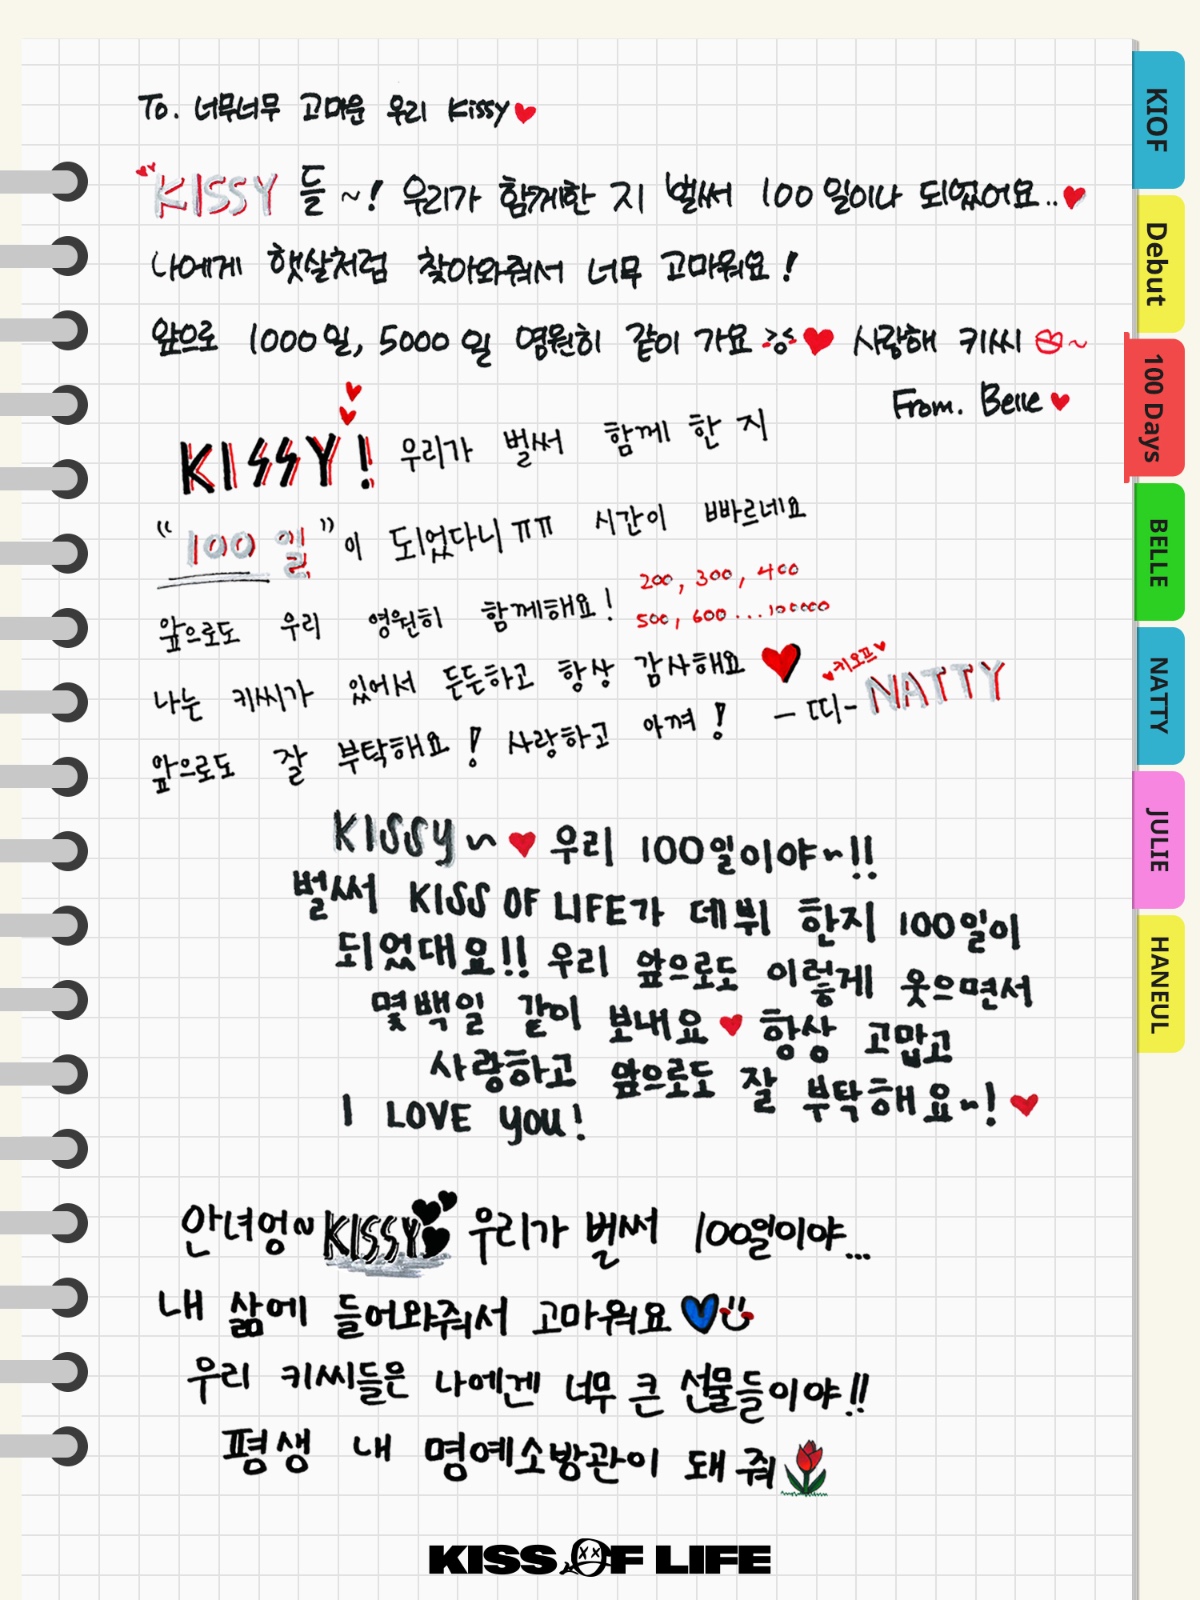 To. 너무너무 고마운 우리 Kissy♥
KISSY 들 ~! 우리가 함께한 지 벌써 100일이나 되었어요..♥
나에게 햇살처럼 찾아와줘서 너무 고마워요!
앞으로 1000일, 5000일 영원히 같이 가요 ♥ 사랑해 키씨 ~
From. Belle♥
KISSY! 우리가 벌써 함께 한 지
"100일"이 되었다니 ㅠㅠ 시간이 빠르네요
앞으로도 우리 영원히 함께해요! 200, 300, 400
500, 600...100000
나는 키씨가 있어서 든든하고 항상 감사해요 ♥
앞으로도 잘 부탁해요! 사랑하고 아껴!
♥키오프♥
- 띠- NATTY
KISSY~♥ 우리 100일이야~!!
벌써 KISS OF LIFE가 데뷔 한지 100일이
되었대요!! 우리 앞으로도 이렇게 웃으면서
몇백일 같이 보내요♥ 항상 고맙고
사랑하고 앞으로도 잘 부탁해요~!♥
I LOVE you!
안녀엉~KISSY 우리가 벌써 100일이야...
내 삶에 들어와줘서 고마워요
우리 키씨들은 나에겐 너무 큰 선물들이야!!
평생 내 명예소방관이 돼 줘
KISS OF LIFE
KIOF
Debut
100 Days
BELLE
NATTY
JULIE
HANEUL